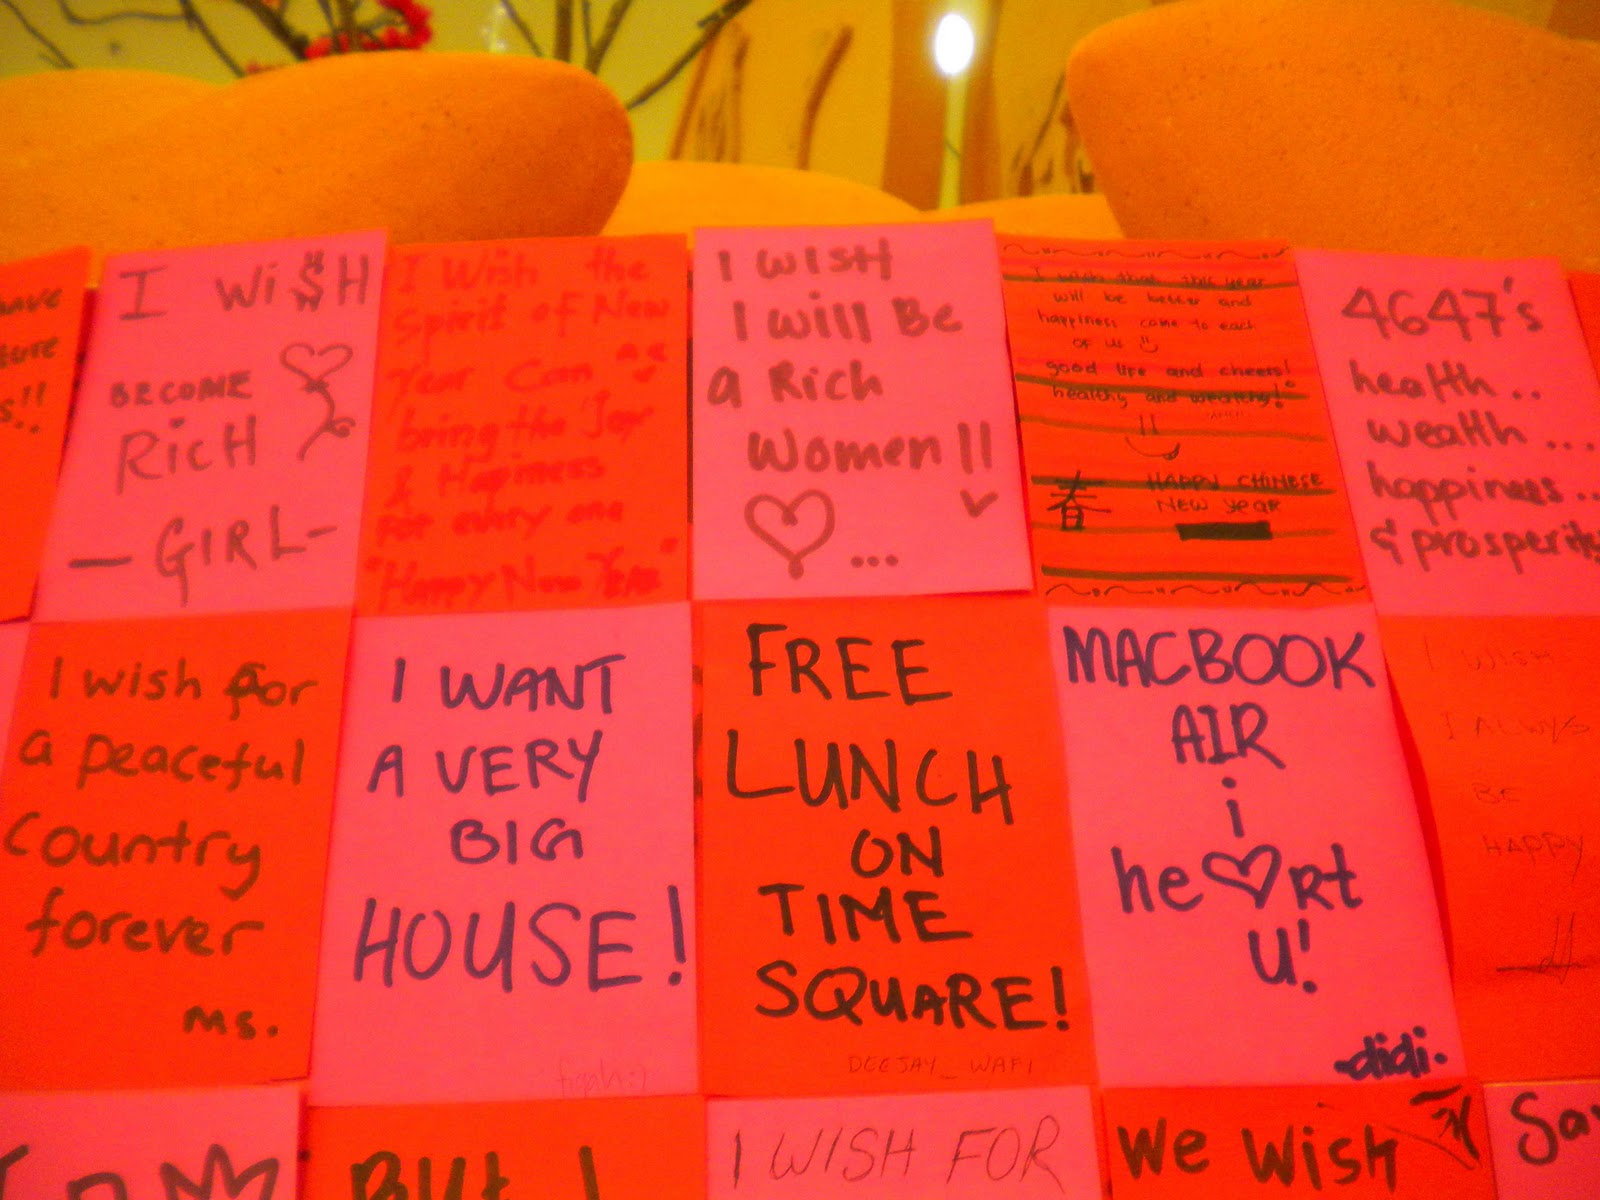 have
ture
s!!
I WI$H
BECOME
RiCH
- GIRL -
I Wish the
Spirit of New
Year Can
bring the Joy
& Hapiness
For every one
"Happy New Year"
I WISH
I will Be
a Rich
Women!!
...
I wish that this year
will be better and
happiness come to each
of us
good life and cheers!
healthy and wealthy!
春 HAPPY CHINESE
NEW year
4647's
health..
wealth...
happiness..
& prosperity
I wish for
a peaceful
Country
forever
Ms.
I WANT
A VERY
BIG
HOUSE!
fiqah:)
FREE
LUNCH
ON
TIME
SQUARE!
DEEJAY_WAFI
MACBOOK
AIR
i
he♡Rt
U!
-didi-
I WISH
I ALWYS
BE
HAPPY
But I
I WISH FOR
We Wish